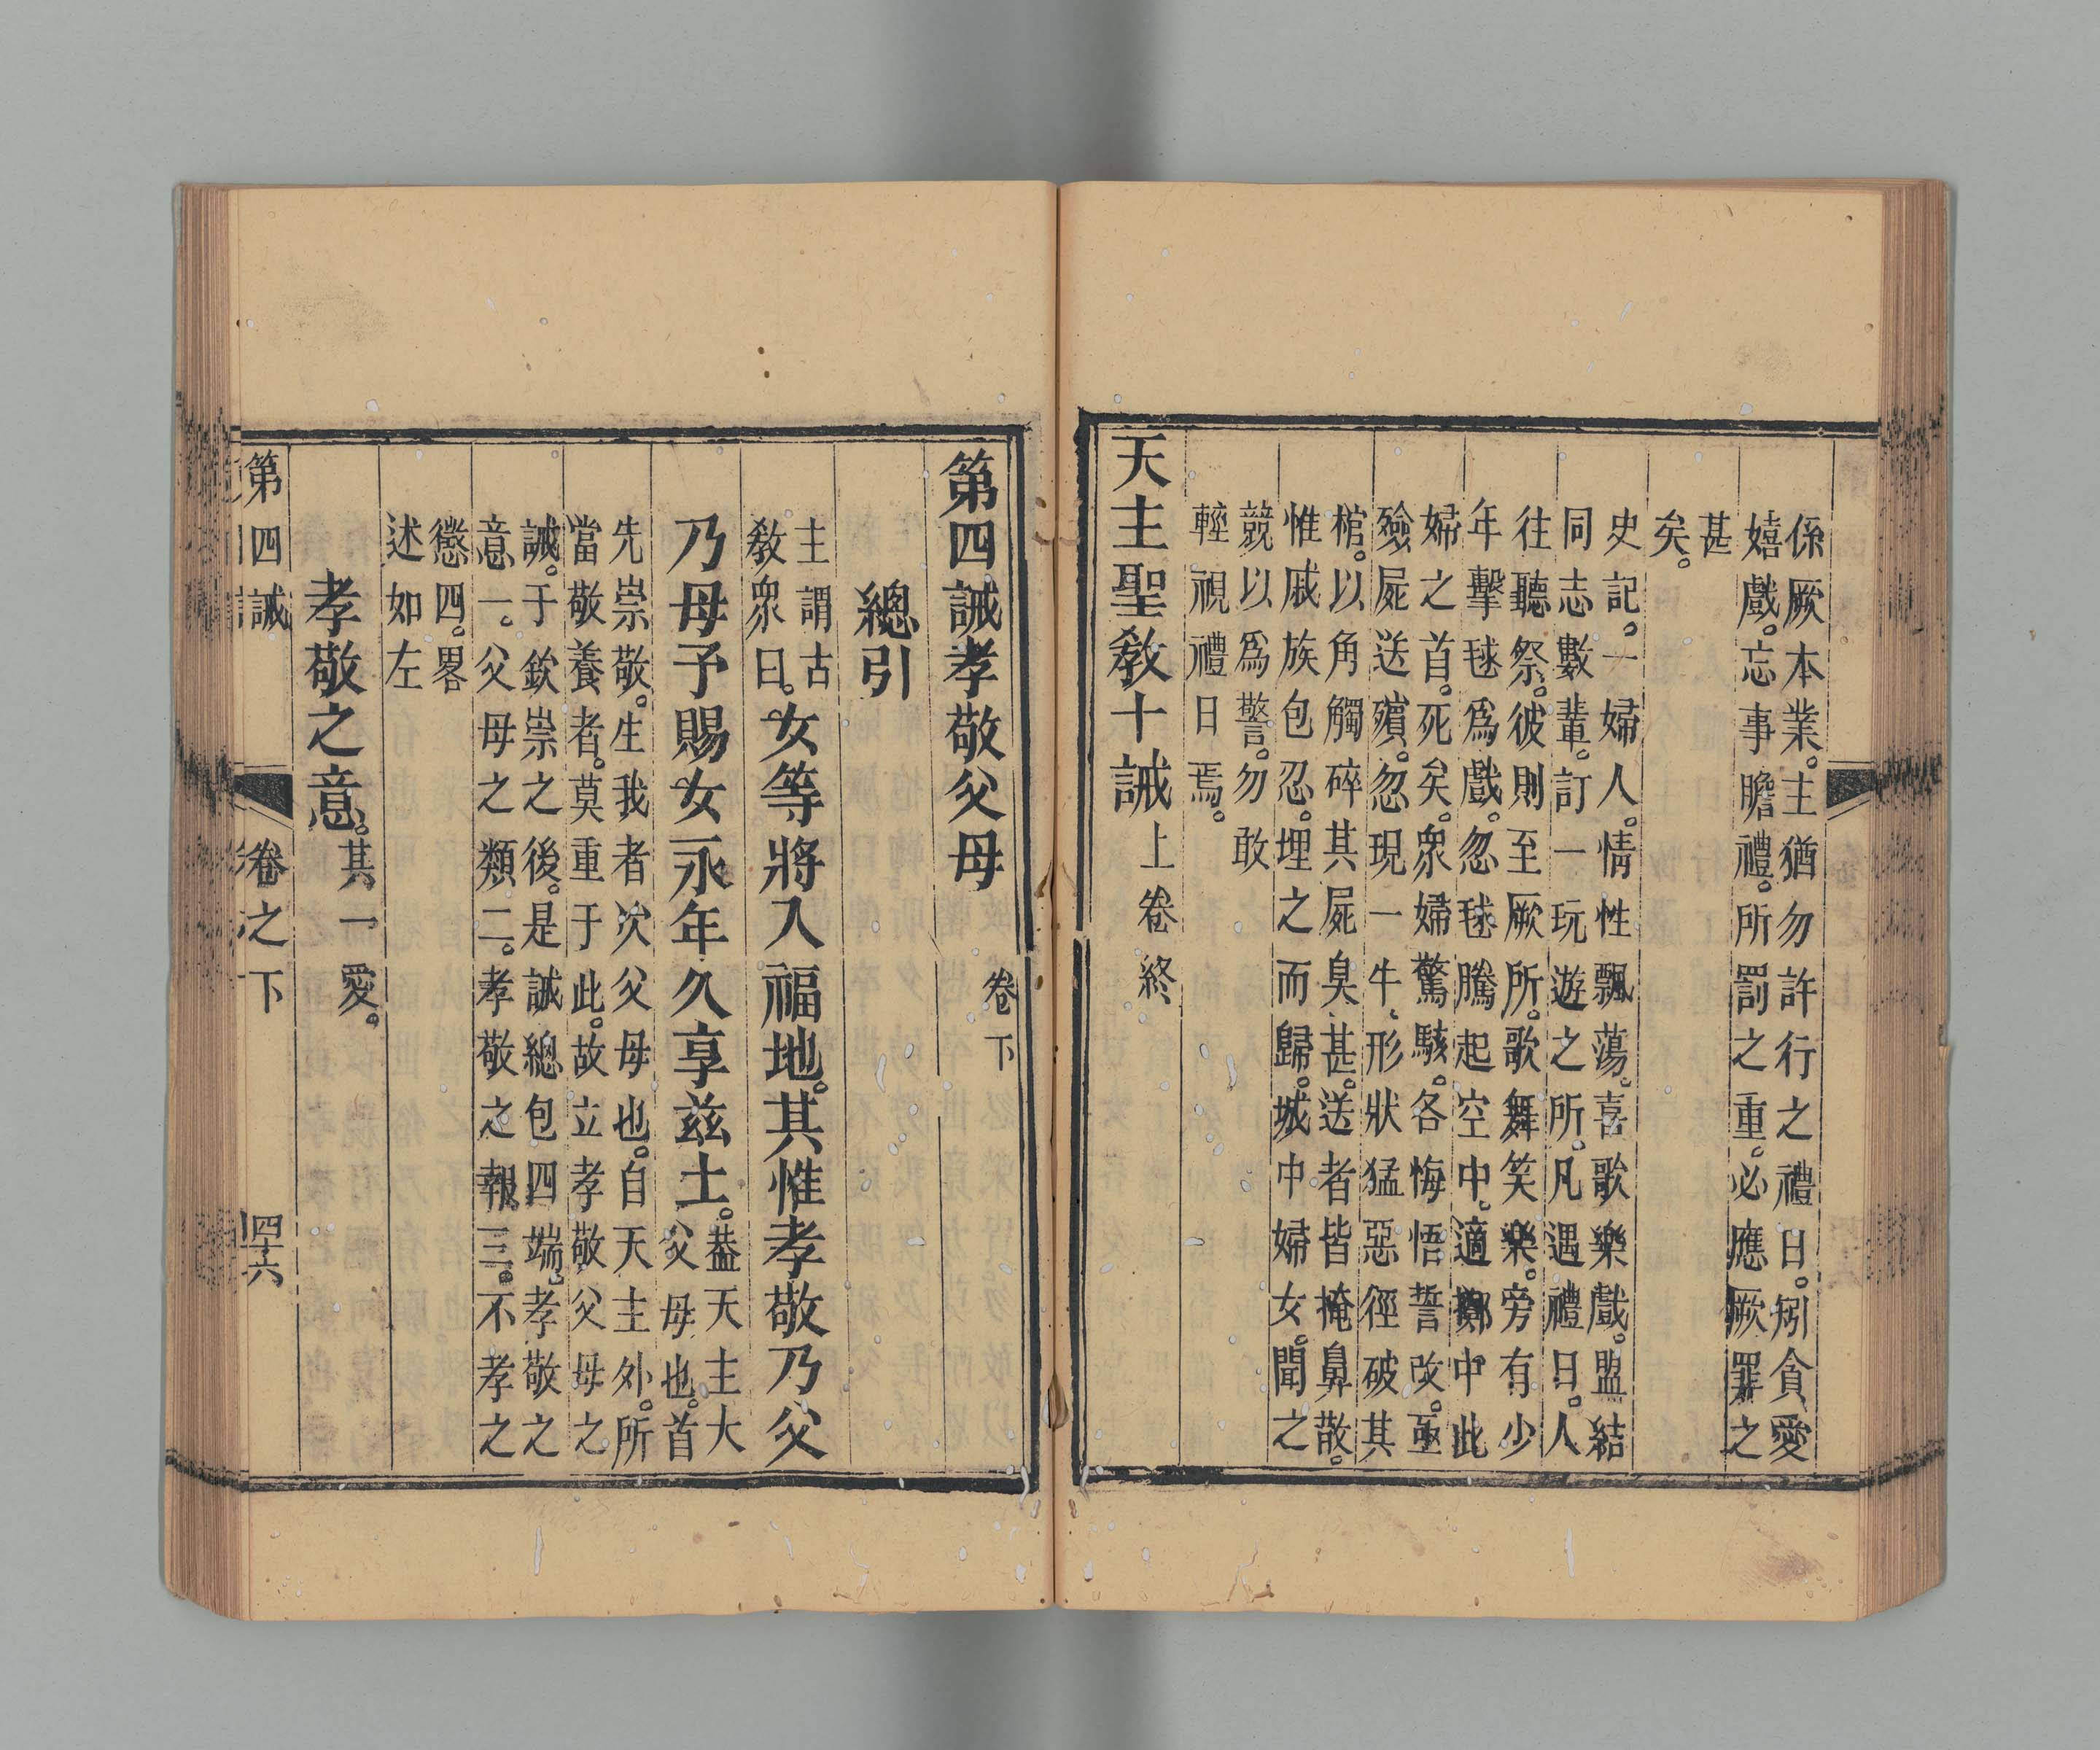 係厥本業。主猶勿許行之禮日。矧貪愛
嬉戲。忘事瞻禮。所罰之重。必應厥罪之
甚
矣。
史記。一婦人。情性飄蕩。喜歌樂戲。盟結
同志數輩。訂一玩遊之所。凡遇禮日。人
往聽祭。彼則至厥所。歌舞笑樂。旁有少
年擊毬爲戲。忽毬騰起空中。適擲中此
婦之首。死矣。衆婦驚駭。各悔悟誓改。亟
殮屍送殯。忽現一牛、形狀猛惡徑破其
棺。以角觸碎其屍臭甚。送者皆掩鼻散。
惟戚族包忍。埋之而歸。城中婦女。聞之
競以爲警。勿敢
輕視禮日焉。
天主聖教十誡上卷 終
第四誡孝敬父母 卷下
總引
主謂古
教衆曰。女等將入福地。其惟孝敬乃父
乃母予賜女永年久享兹土。葢天主大
父母也。首
先崇敬。生我者次父母也。自天主外。所
當敬養者。莫重于此。故立孝敬父母之
誡。于欽崇之後。是誡總包四端。孝敬之
意一。父母之類二。孝敬之報三。不孝之
懲四。畧
述如左
孝敬之意。其一愛。
第四誡 卷之下 四六